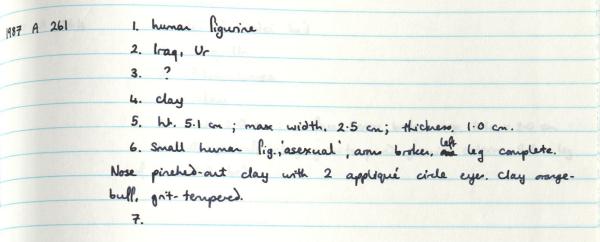 1987 A 261 1. human figurine
2. Iraq, Ur
3. ?
4. clay
5. ht. 5.1 cm; max width. 2.5 cm; thickness. 1.0 cm.
6. Small human fig., 'asexual', arms broken, left leg complete.
Nose pinched-out clay with 2 appliqué circle eyes. Clay orange-
buff, grit-tempered.
7.